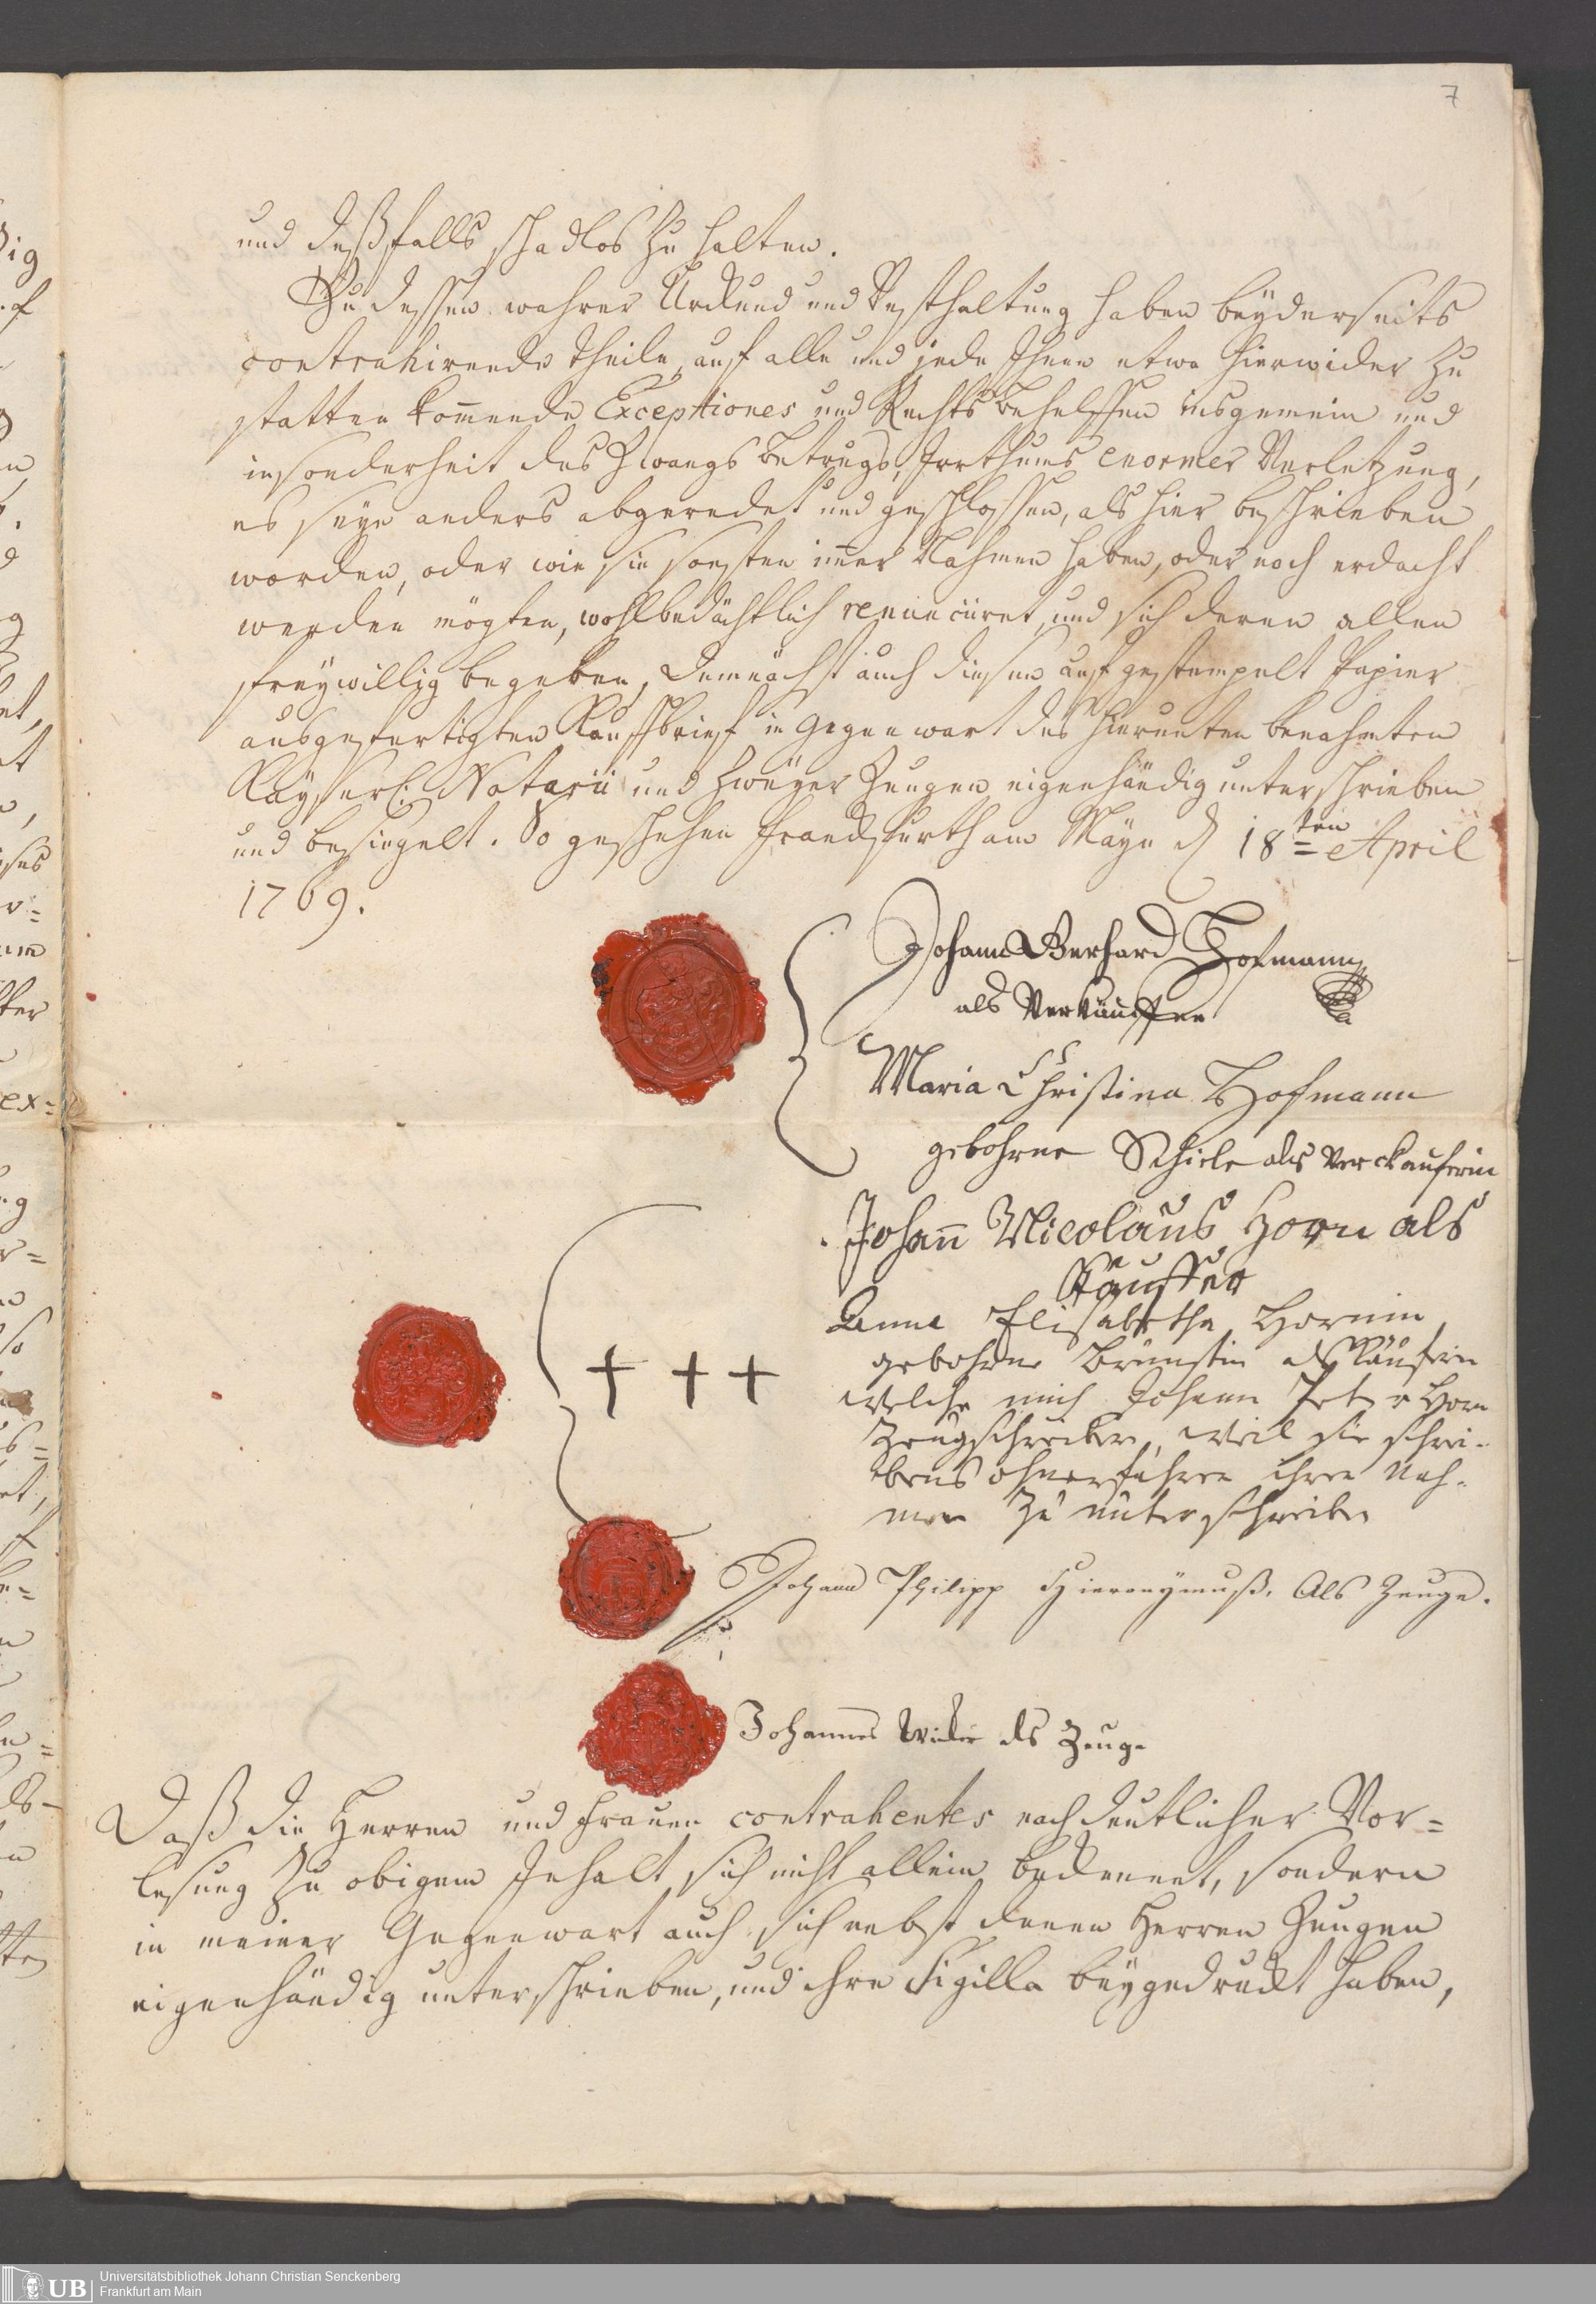 7
und deßfalls schadlos zu halten.
Zu dessen wahrer Urkund und Vesthaltung haben beyderseits
contrahirende Theile, auf alle und jede Ihnen etwa hierwider zu
statten kom̄ende Exceptiones und Rechts Behelffen insgemein und
insonderheit des Zwangs Betrugs, Irrthums enormer Verletzung,
es seye anders abgeredet und geschlossen, als hier beschrieben
worden, oder wie sie sonsten im̄er Nahmen haben, oder noch erdacht
werden mögten, wohlbedächtlich renunciiret, und sich deren allen
freywillig begeben, demnächst auch diesen auf gestempelt Papier
ausgefertigten Kauffbrief in Gegenwart des hierunten benahmten
Kayserl: Notarii und zweyer Zeugen eigenhändig unterschrieben
und besiegelt. So geschehen Franckfurth am Mayn d 18ten April
1769.
Johann Berhard Hofmann
als Verkäuffer
Maria Christina Hofmann
gebohrne Schiele als Verckauferin
Johan̄ Nicolaus Horn als
Käuffer
Anna Elisabetha Hornin
gebohrne Brünstin als Käuferin
welche mich Johann Peter Horn
Zeugschreiber, weil sie schrei-
bens ohnerfahren ihren Nah-
men zu unterschreiben
+ + +
Johann Philipp Hieronymuß. Als Zeuge.
Johannes als Zeuge
Daß die Herren und Frauen contrahentes nach deutlicher Vor=
lesung zu obigem Inhalt sich nicht allein bekennet, sondern
in meiner Gegenwart auch sich nebst denen Herren Zeugen
eigenhändig unterschrieben, und ihre Sigilla beygedruckt haben,
UB Universitätsbibliothek Johann Christian Senckenberg
Frankfurt am Main